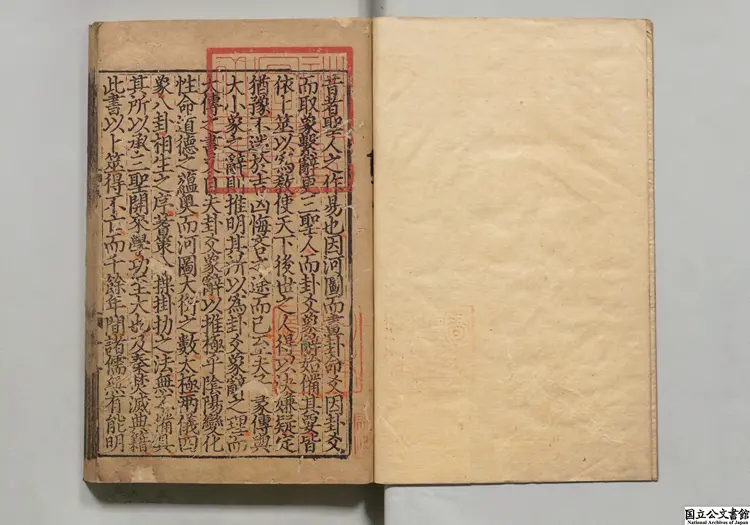 昔者聖人之作易也因河圖而畫卦命爻因卦爻
而取象繫辭更三聖人而卦爻彖辭始備其要皆
依卜筮以為教使天下後世之人得以決嫌疑定
猶豫不迷於吉凶悔吝之途而已至夫子彖傳與
大小象之辭則推明其所以為卦爻彖辭之理而
大傳之書又夫卦爻彖辭以推極乎陰陽變化
性命道德之蘊奥而河圖大衍之數太極兩儀四
象八卦相生之序蓍策揲掛扐之法無不備具
其所以承三聖開來學功至大也及秦焚滅典籍
此書以卜筮得不亡而千餘年間諸儒無有能明
国立公文書館
National Archives of Japan